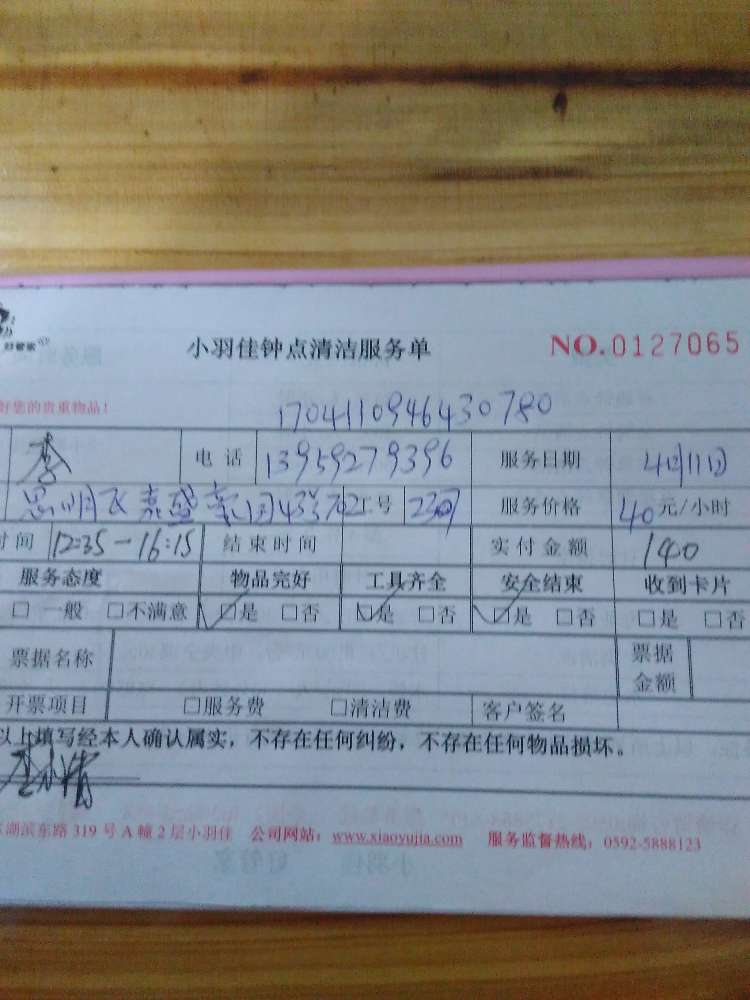 好管家
小羽佳钟点清洁服务单 NO.0127065
好您的贵重物品!
1704110946430780
李 电话 13959279396 服务日期 4月11日
思明区嘉盛豪园 工号 服务价格 40元/小时
时间 12:35-16:15 结束时间 实付金额 140
服务态度 物品完好 工具齐全 安全结束 收到卡片
□一般 □不满意 □是 □否 □是 □否 □是 □否 □是 □否
票据名称 票据金额
开票项目 □服务费 □清洁费 客户签名
以上填写经本人确认属实，不存在任何纠纷，不存在任何物品损坏。
湖滨东路319号A幢2层小羽佳 公司网站：www.xiaoyujia.com 服务监督热线：0592-5888123